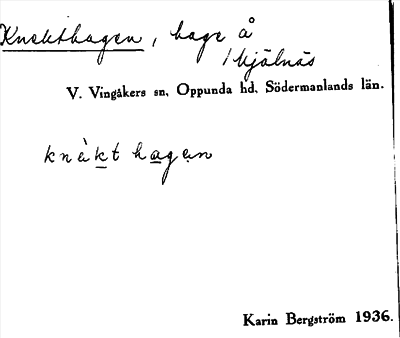 Knekthagen, hage å
Hjälnäs
V. Vingåkers sn, Oppunda hd, Södermanlands län.
knèkt hagen
Karin Bergström 1936.